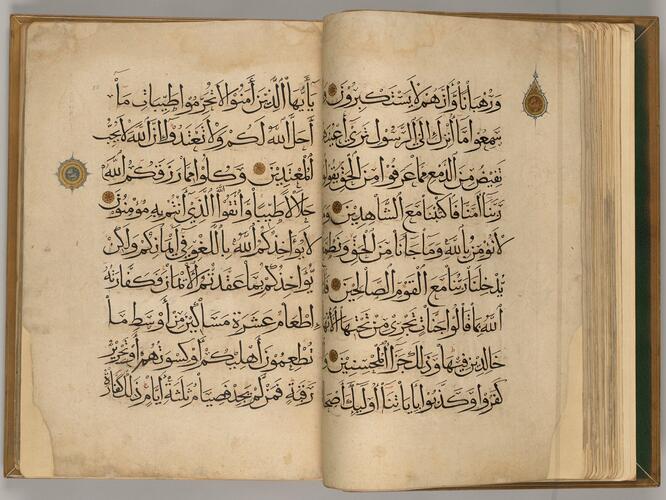 ورهبانا وانهم لا يستكبرون و
سمعوا ما انزل الى الرسول ترى اعينهم
تفيض من الدمع مما عرفوا من الحق يقولون
ربنا امنا فاكتبنا مع الشاهدين و
لا نؤمن بالله وما جانا من الحق ونطمع
يدخلنا ربنا مع القوم الصالحين
الله بما قالوا جنات تجري من تحتها الانهار
خالدين فيها وذلك جزا المحسنين
كفروا وكذبوا باياتنا اوليك اصحاب
يا أيها الذين آمنوا لا تحرموا طيبات ما
أحل الله لكم ولا تعتدوا ان الله لا يحب
المعتدين وكلوا مما رزقكم الله
حلالا طيبا واتقوا الله الذي انتم به مؤمنون
لا يؤاخذكم الله باللغو في ايمانكم ولكن
يؤاخذكم بما عقدتم الايمان فكفارته
اطعام عشرة مساكين من أوسط ما
تطعمون أهليكم أو كسوتهم أو تحرير
رقبة فمن لم يجد فصيام ثلثة ايام ذلك كفارة